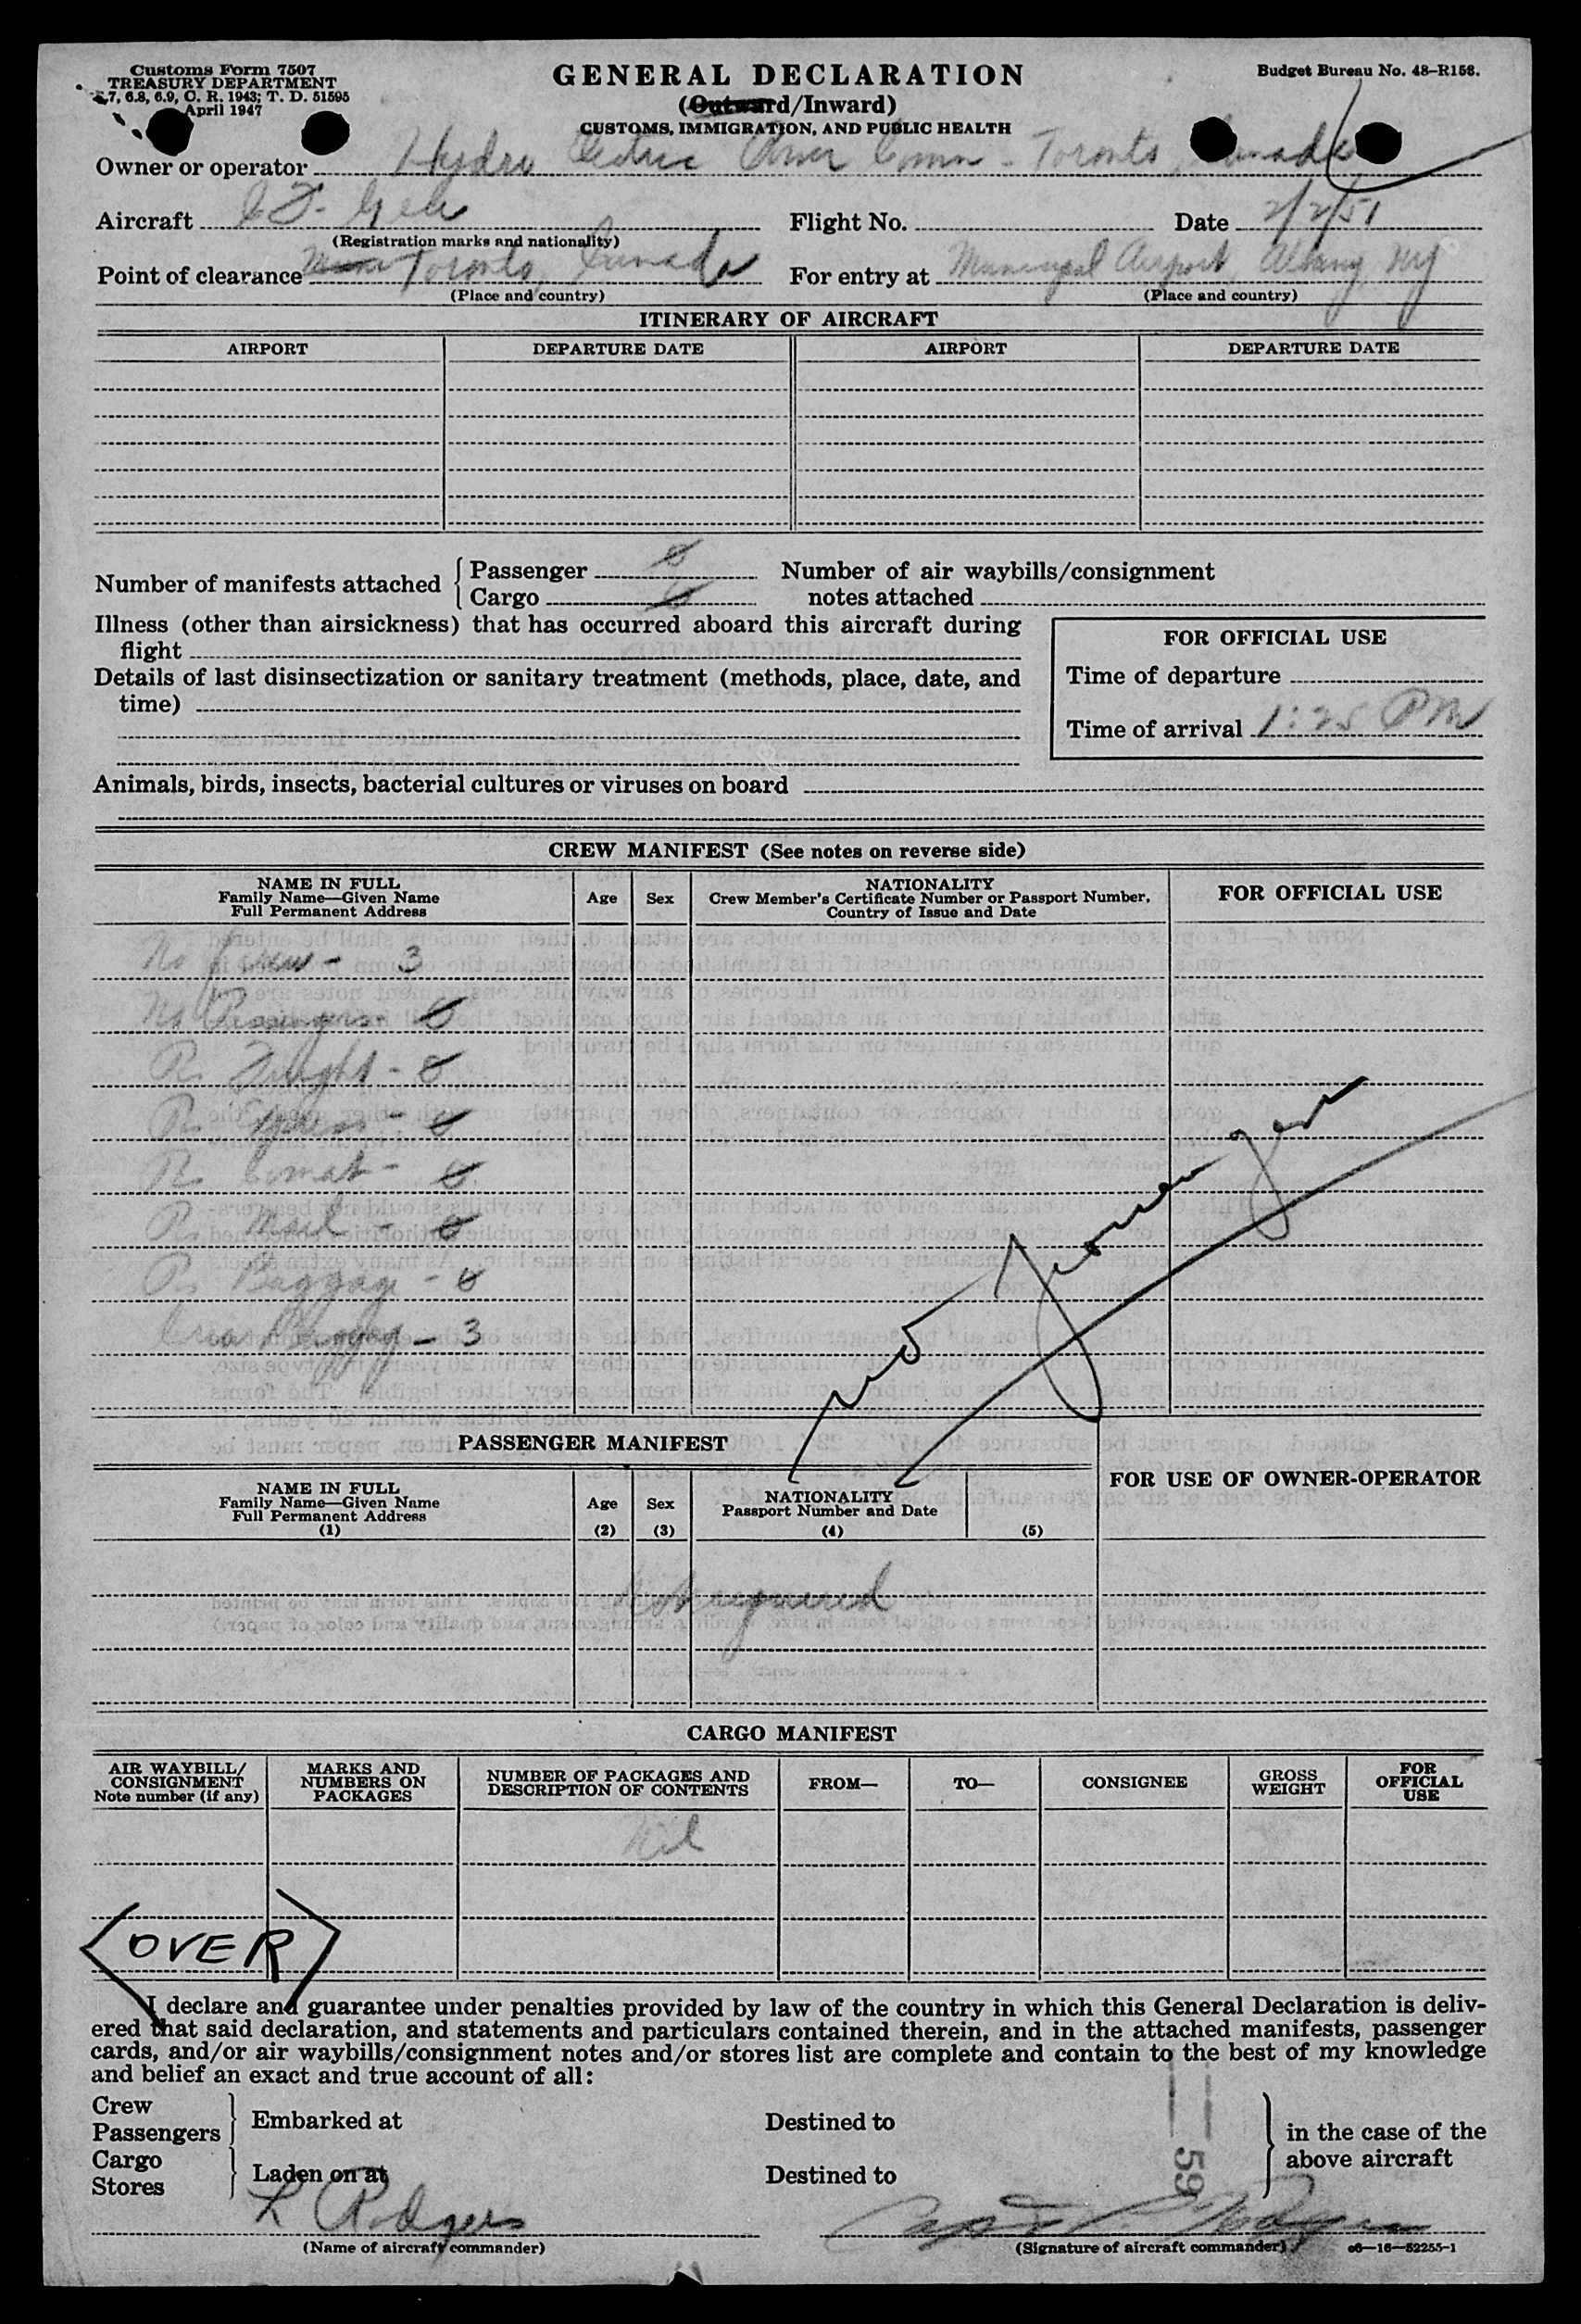 Customs Form 7507
TREASURY DEPARTMENT
4.7, 6.8, 6.9, C. R. 1943; T. D. 51595
April 1947
GENERAL DECLARATION
(Outward/Inward)
CUSTOMS, IMMIGRATION, AND PUBLIC HEALTH
Budget Bureau No. 48-R158.
Owner or operator Hydro Electric Power Comm - Toronto, Canada
Aircraft CF-
(Registration marks and nationality)
Flight No.
Date 2/2/51
Point of clearance Toronto, Canada
(Place and country)
For entry at Municipal Airport, Albany, NY
(Place and country)
ITINERARY OF AIRCRAFT
AIRPORT DEPARTURE DATE AIRPORT DEPARTURE DATE
Number of manifests attached { Passenger 0
Cargo 0
Number of air waybills/consignment
notes attached
Illness (other than airsickness) that has occurred aboard this aircraft during
flight
Details of last disinsectization or sanitary treatment (methods, place, date, and
time)
FOR OFFICIAL USE
Time of departure
Time of arrival 1:25 PM
Animals, birds, insects, bacterial cultures or viruses on board
CREW MANIFEST (See notes on reverse side)
NAME IN FULL
Family Name—Given Name
Full Permanent Address
Age
Sex
NATIONALITY
Crew Member's Certificate Number or Passport Number,
Country of Issue and Date
FOR OFFICIAL USE
No Crew - 3
No Passengers - 0
Freight - 0
Express - 0
Comat - 0
Mail - 0
Baggage - 0
Crew Baggage - 3
PASSENGER MANIFEST
NAME IN FULL
Family Name—Given Name
Full Permanent Address
(1)
Age
(2)
Sex
(3)
NATIONALITY
Passport Number and Date
(4)
(5)
FOR USE OF OWNER-OPERATOR
Not required
CARGO MANIFEST
AIR WAYBILL/
CONSIGNMENT
Note number (if any)
MARKS AND
NUMBERS ON
PACKAGES
NUMBER OF PACKAGES AND
DESCRIPTION OF CONTENTS
FROM—
TO—
CONSIGNEE
GROSS
WEIGHT
FOR
OFFICIAL
USE
Nil
OVER
I declare and guarantee under penalties provided by law of the country in which this General Declaration is deliv-
ered that said declaration, and statements and particulars contained therein, and in the attached manifests, passenger
cards, and/or air waybills/consignment notes and/or stores list are complete and contain to the best of my knowledge
and belief an exact and true account of all:
Crew
Passengers } Embarked at Destined to
Cargo
Stores } Laden on at Destined to
} in the case of the
above aircraft
59
L Rodgers
(Name of aircraft commander)
(Signature of aircraft commander)
16—52255-1